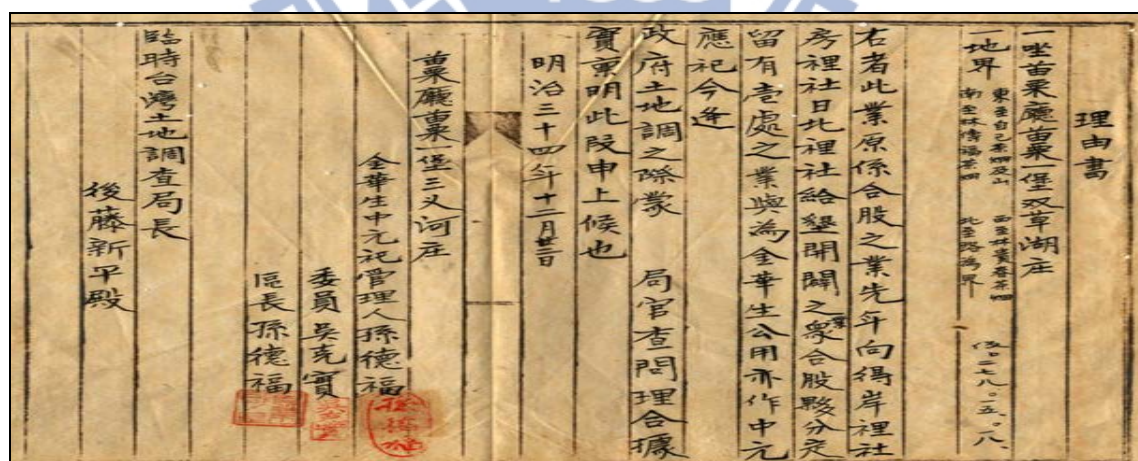 理由書
一坐苗栗廳苗栗一堡双草湖庄
一地界 東至自己茶畑及山 西至林貴春茶畑
南至林偉福茶畑 北至路為界
右者此業原係合股之業先年向得岸裡社
房裡社日北裡社給墾開闢之業眾合股夥分定
留有壹處之業與為金華生公用亦作中元
應祀今逢
政府土地調之際蒙 局官查問理合據
實稟明此段申上候也
明治三十四年十二月廿三日
苗栗廳苗栗一堡三义河庄
金華生中元祀管理人孫德福
委員吳克實
區長孫德福
臨時台灣土地調查局長
後藤新平殿